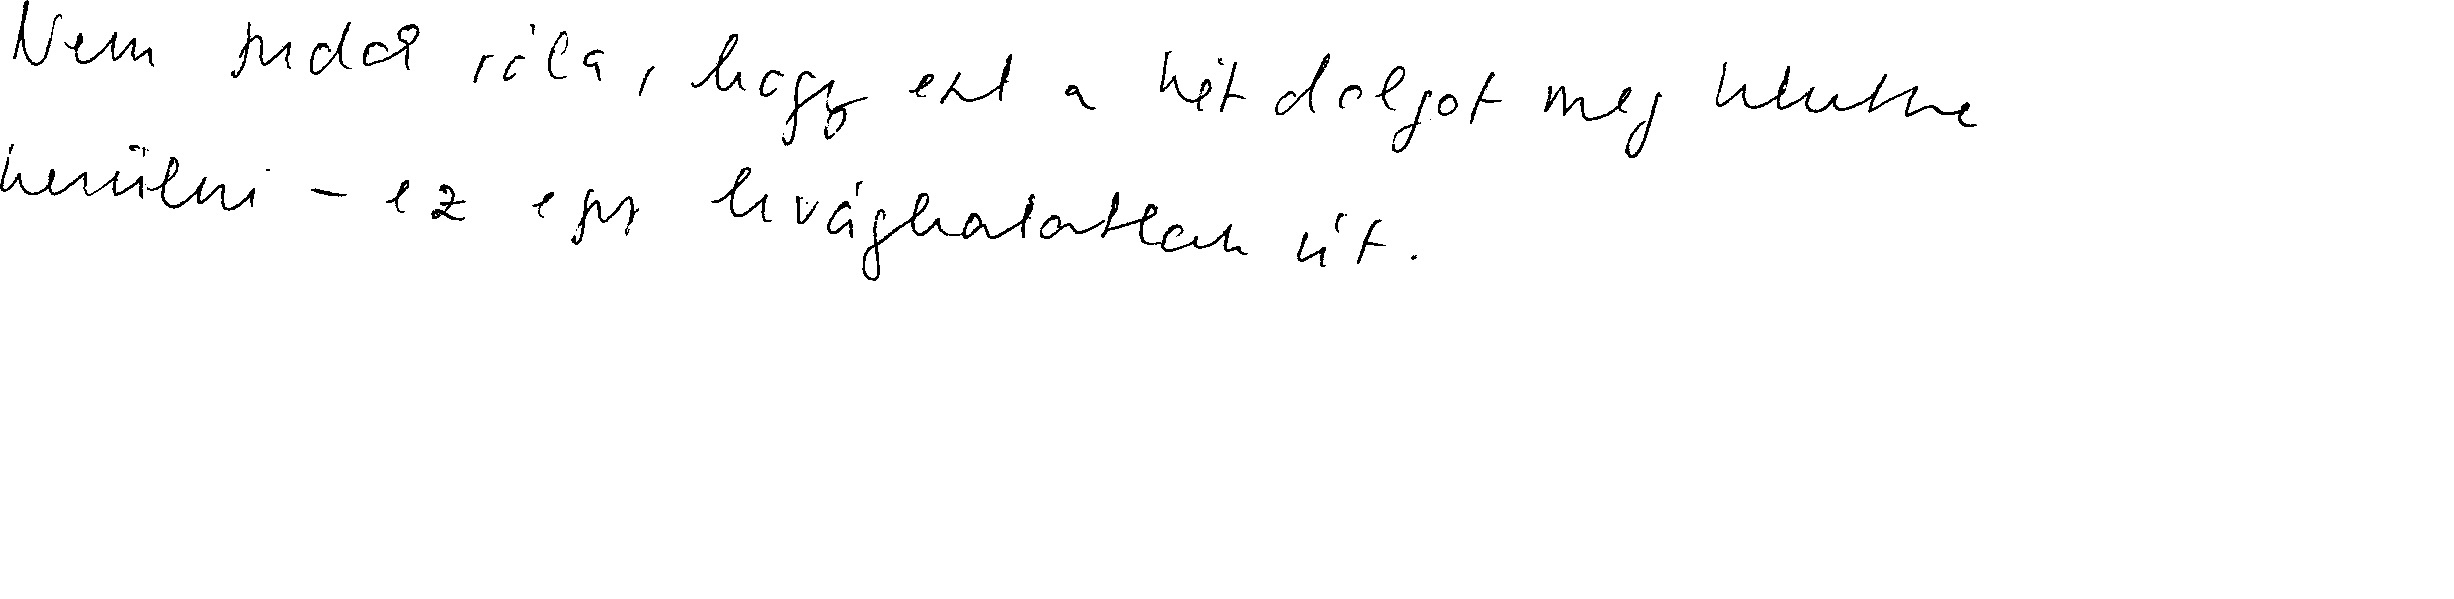 Nem tudok róla, hogy ezt a két dolgot meg lehetne
kerülni - ez egy kivághatatlan út.